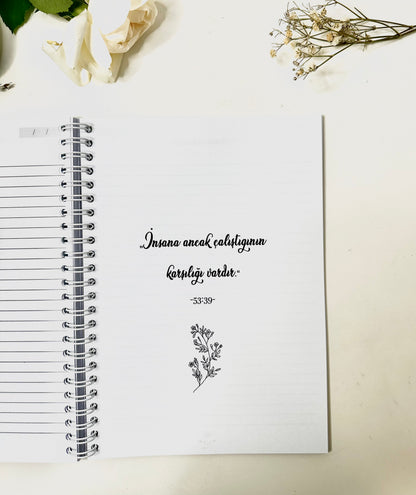 / /
„İnsana ancak çalıştığının
karşılığı vardır.“
-53:39-